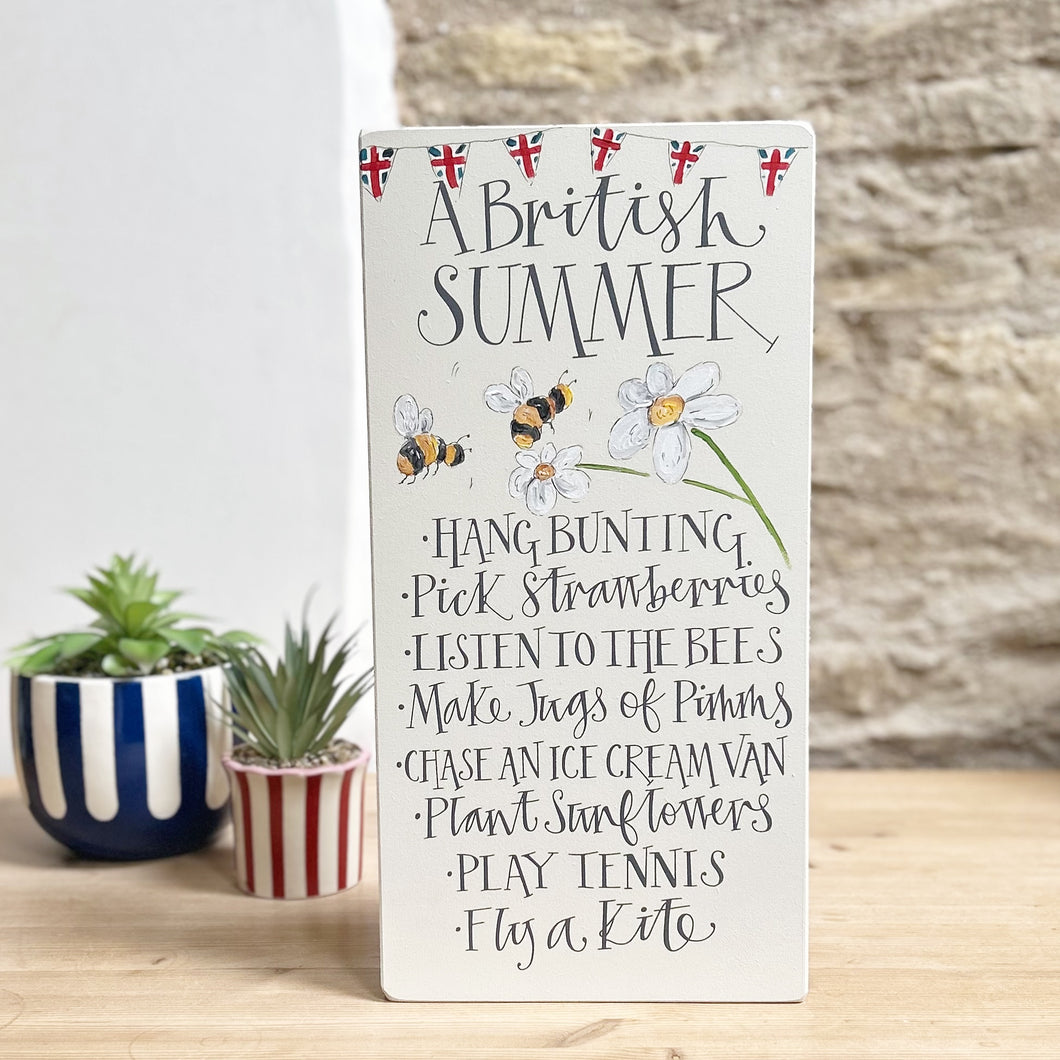 A British
SUMMER
·HANG BUNTING
·Pick Strawberries
·LISTEN TO THE BEES
·Make Jugs of Pimms
·CHASE AN ICE CREAM VAN
·Plant Sunflowers
·PLAY TENNIS
·Fly a Kite